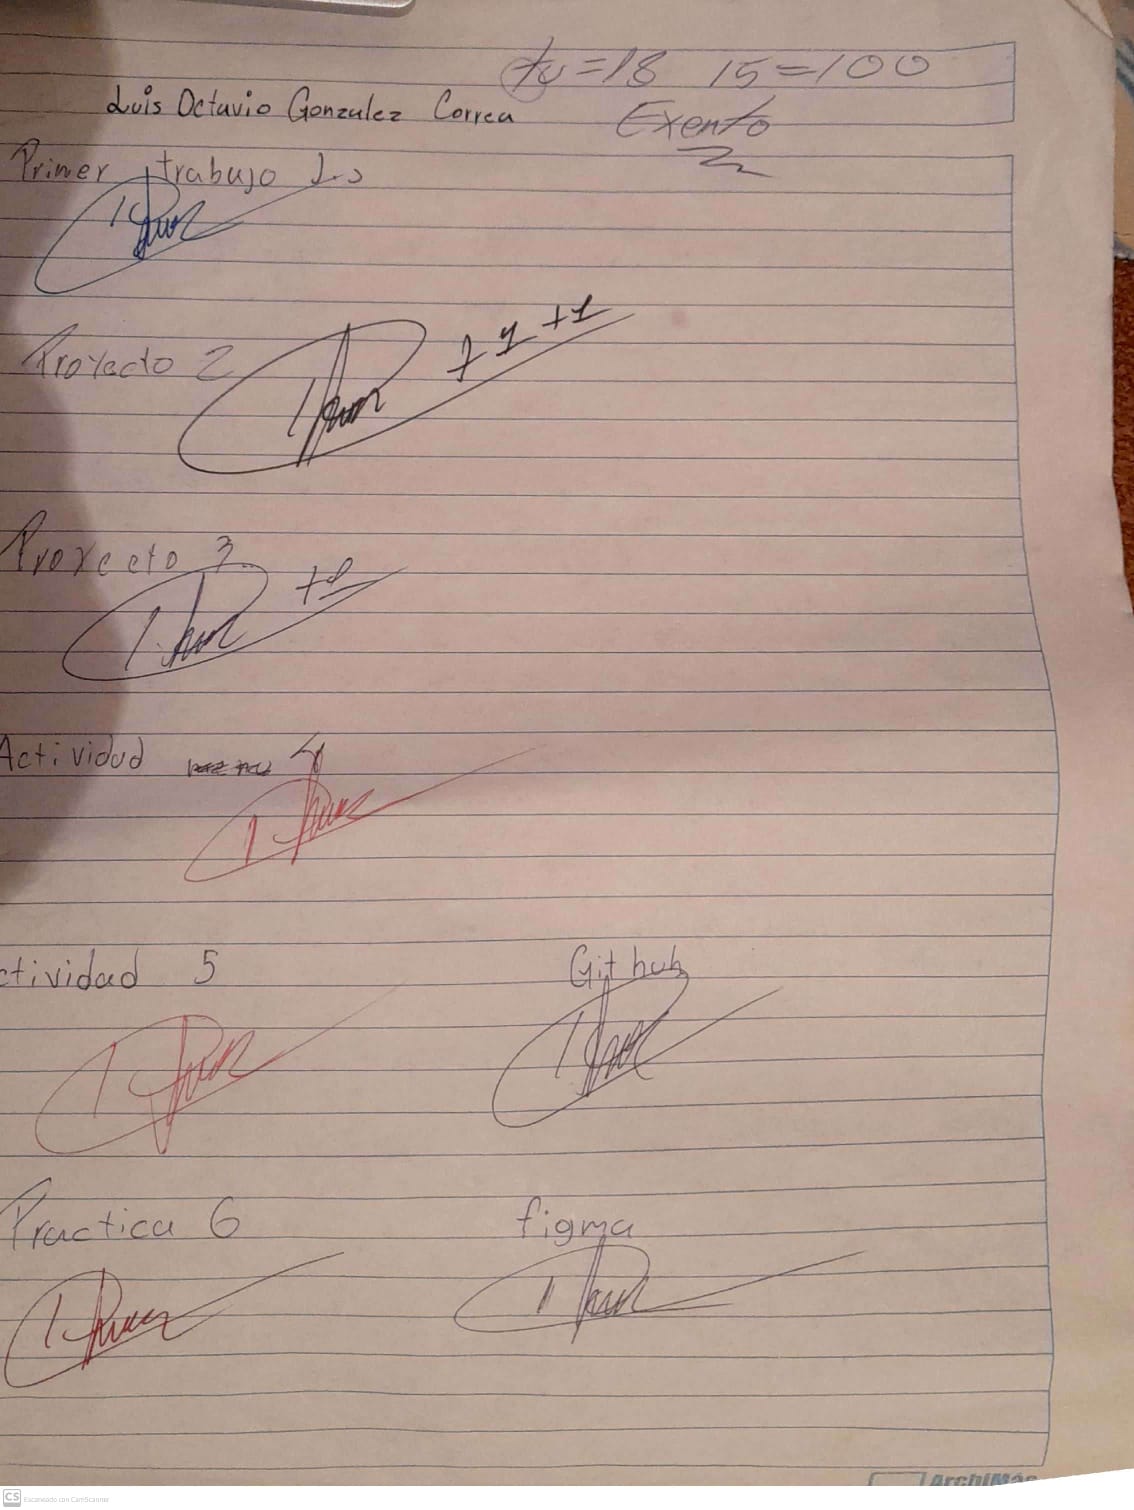 tu = 18 15 = 100
Luis Octavio Gonzalez Correa
Exento
Primer trabajo
Proyecto 2
+1 +1
Proyecto 3
+1
Actividad 4
ctividad 5
Github
Practica 6
figma
ArchiMás
CS Escaneado con CamScanner